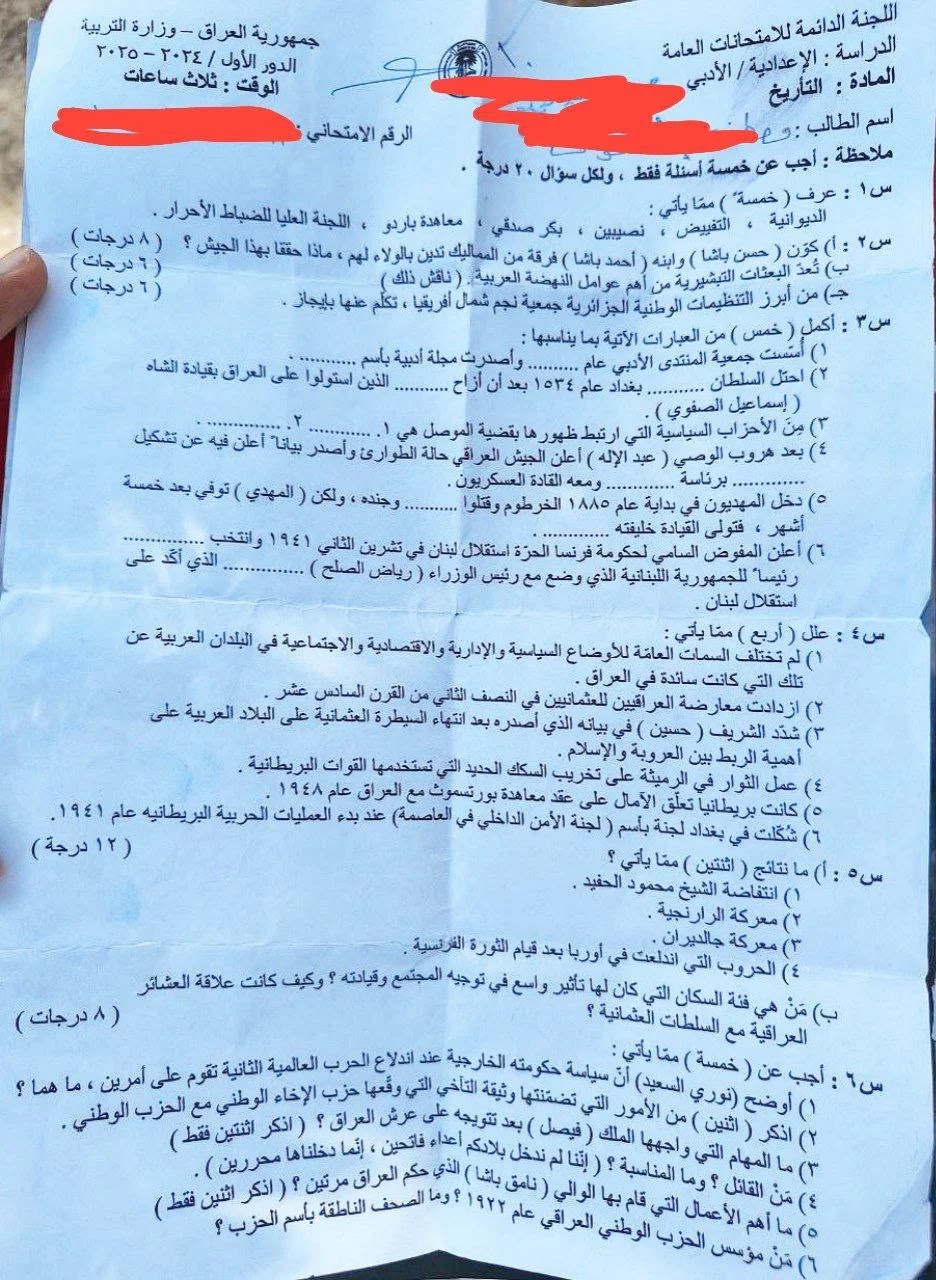 اللجنة الدائمة للامتحانات العامة
الدراسة : الإعدادية / الأدبي
المادة : التأريخ
اسم الطالب :
جمهورية العراق – وزارة التربية
الدور الأول / ٢٠٢٤ – ٢٠٢٥
الوقت : ثلاث ساعات
الرقم الامتحاني :
ملاحظة : أجب عن خمسة أسئلة فقط ، ولكل سؤال ٢٠ درجة .
س١ : عرف ( خمسةً ) ممّا يأتي :
الديوانية ، التفييض ، نصيبين ، بكر صدقي ، معاهدة باردو ، اللجنة العليا للضباط الأحرار .
س٢ : أ) كوّن ( حسن باشا ) وابنه ( أحمد باشا ) فرقة من المماليك تدين بالولاء لهم ، ماذا حققا بهذا الجيش ؟ ( ٨ درجات )
ب) تُعدّ البعثات التبشيرية من أهم عوامل النهضة العربية . ( ناقش ذلك ) ( ٦ درجات )
جـ) من أبرز التنظيمات الوطنية الجزائرية جمعية نجم شمال أفريقيا ، تكلّم عنها بإيجاز . ( ٦ درجات )
س٣ : أكمل ( خمس ) من العبارات الآتية بما يناسبها :
١) أُسّست جمعية المنتدى الأدبي عام .......... وأصدرت مجلة أدبية بأسم ........... .
٢) احتل السلطان ........... بغداد عام ١٥٣٤ بعد أن أزاح .......... الذين استولوا على العراق بقيادة الشاه
( إسماعيل الصفوي ) .
٣) مِنَ الأحزاب السياسية التي ارتبط ظهورها بقضية الموصل هي ١. ............ ٢. ............. .
٤) بعد هروب الوصي ( عبد الإله ) أعلن الجيش العراقي حالة الطوارئ وأصدر بياناً أعلن فيه عن تشكيل
............. برئاسة ............. ومعه القادة العسكريون .
٥) دخل المهديون في بداية عام ١٨٨٥ الخرطوم وقتلوا .......... وجنده ، ولكن ( المهدي ) توفي بعد خمسة
أشهر ، فتولى القيادة خليفته ............. .
٦) أعلن المفوض السامي لحكومة فرنسا الحرّة استقلال لبنان في تشرين الثاني ١٩٤١ وانتخب ...............
رئيساً للجمهورية اللبنانية الذي وضع مع رئيس الوزراء ( رياض الصلح ) ............... الذي أكّد على
استقلال لبنان .
س٤ : علل ( أربع ) ممّا يأتي :
١) لم تختلف السمات العامّة للأوضاع السياسية والإدارية والاقتصادية والاجتماعية في البلدان العربية عن
تلك التي كانت سائدة في العراق .
٢) ازدادت معارضة العراقيين للعثمانيين في النصف الثاني من القرن السادس عشر .
٣) شدّد الشريف ( حسين ) في بيانه الذي أصدره بعد انتهاء السيطرة العثمانية على البلاد العربية على
أهمية الربط بين العروبة والإسلام .
٤) عمل الثوار في الرميثة على تخريب السكك الحديد التي تستخدمها القوات البريطانية .
٥) كانت بريطانيا تعلّق الآمال على عقد معاهدة بورتسموث مع العراق عام ١٩٤٨ .
٦) شُكّلت في بغداد لجنة بأسم ( لجنة الأمن الداخلي في العاصمة) عند بدء العمليات الحربية البريطانيه عام ١٩٤١.
س٥ : أ) ما نتائج ( اثنتين ) ممّا يأتي ؟ ( ١٢ درجة )
١) انتفاضة الشيخ محمود الحفيد .
٢) معركة الرارنجية .
٣) معركة جالديران .
٤) الحروب التي اندلعت في أوربا بعد قيام الثورة الفرنسية .
ب) مَنْ هي فئة السكان التي كان لها تأثير واسع في توجيه المجتمع وقيادته ؟ وكيف كانت علاقة العشائر
العراقية مع السلطات العثمانية ؟ ( ٨ درجات )
س٦ : أجب عن ( خمسة ) ممّا يأتي :
١) أوضح (نوري السعيد) أنّ سياسة حكومته الخارجية عند اندلاع الحرب العالمية الثانية تقوم على أمرين ، ما هما ؟
٢) اذكر ( اثنين ) من الأمور التي تضمّنتها وثيقة التآخي التي وقّعها حزب الإخاء الوطني مع الحزب الوطني .
٣) ما المهام التي واجهها الملك ( فيصل ) بعد تتويجه على عرش العراق ؟ ( اذكر اثنتين فقط )
٤) مَنْ القائل ؟ وما المناسبة ؟ ( إنّنا لم ندخل بلادكم أعداء فاتحين ، إنّما دخلناها محررين ) .
٥) ما أهم الأعمال التي قام بها الوالي ( نامق باشا ) الذي حكم العراق مرتين ؟ ( اذكر اثنين فقط )
٦) مَنْ مؤسس الحزب الوطني العراقي عام ١٩٢٢ ؟ وما الصحف الناطقة بأسم الحزب ؟